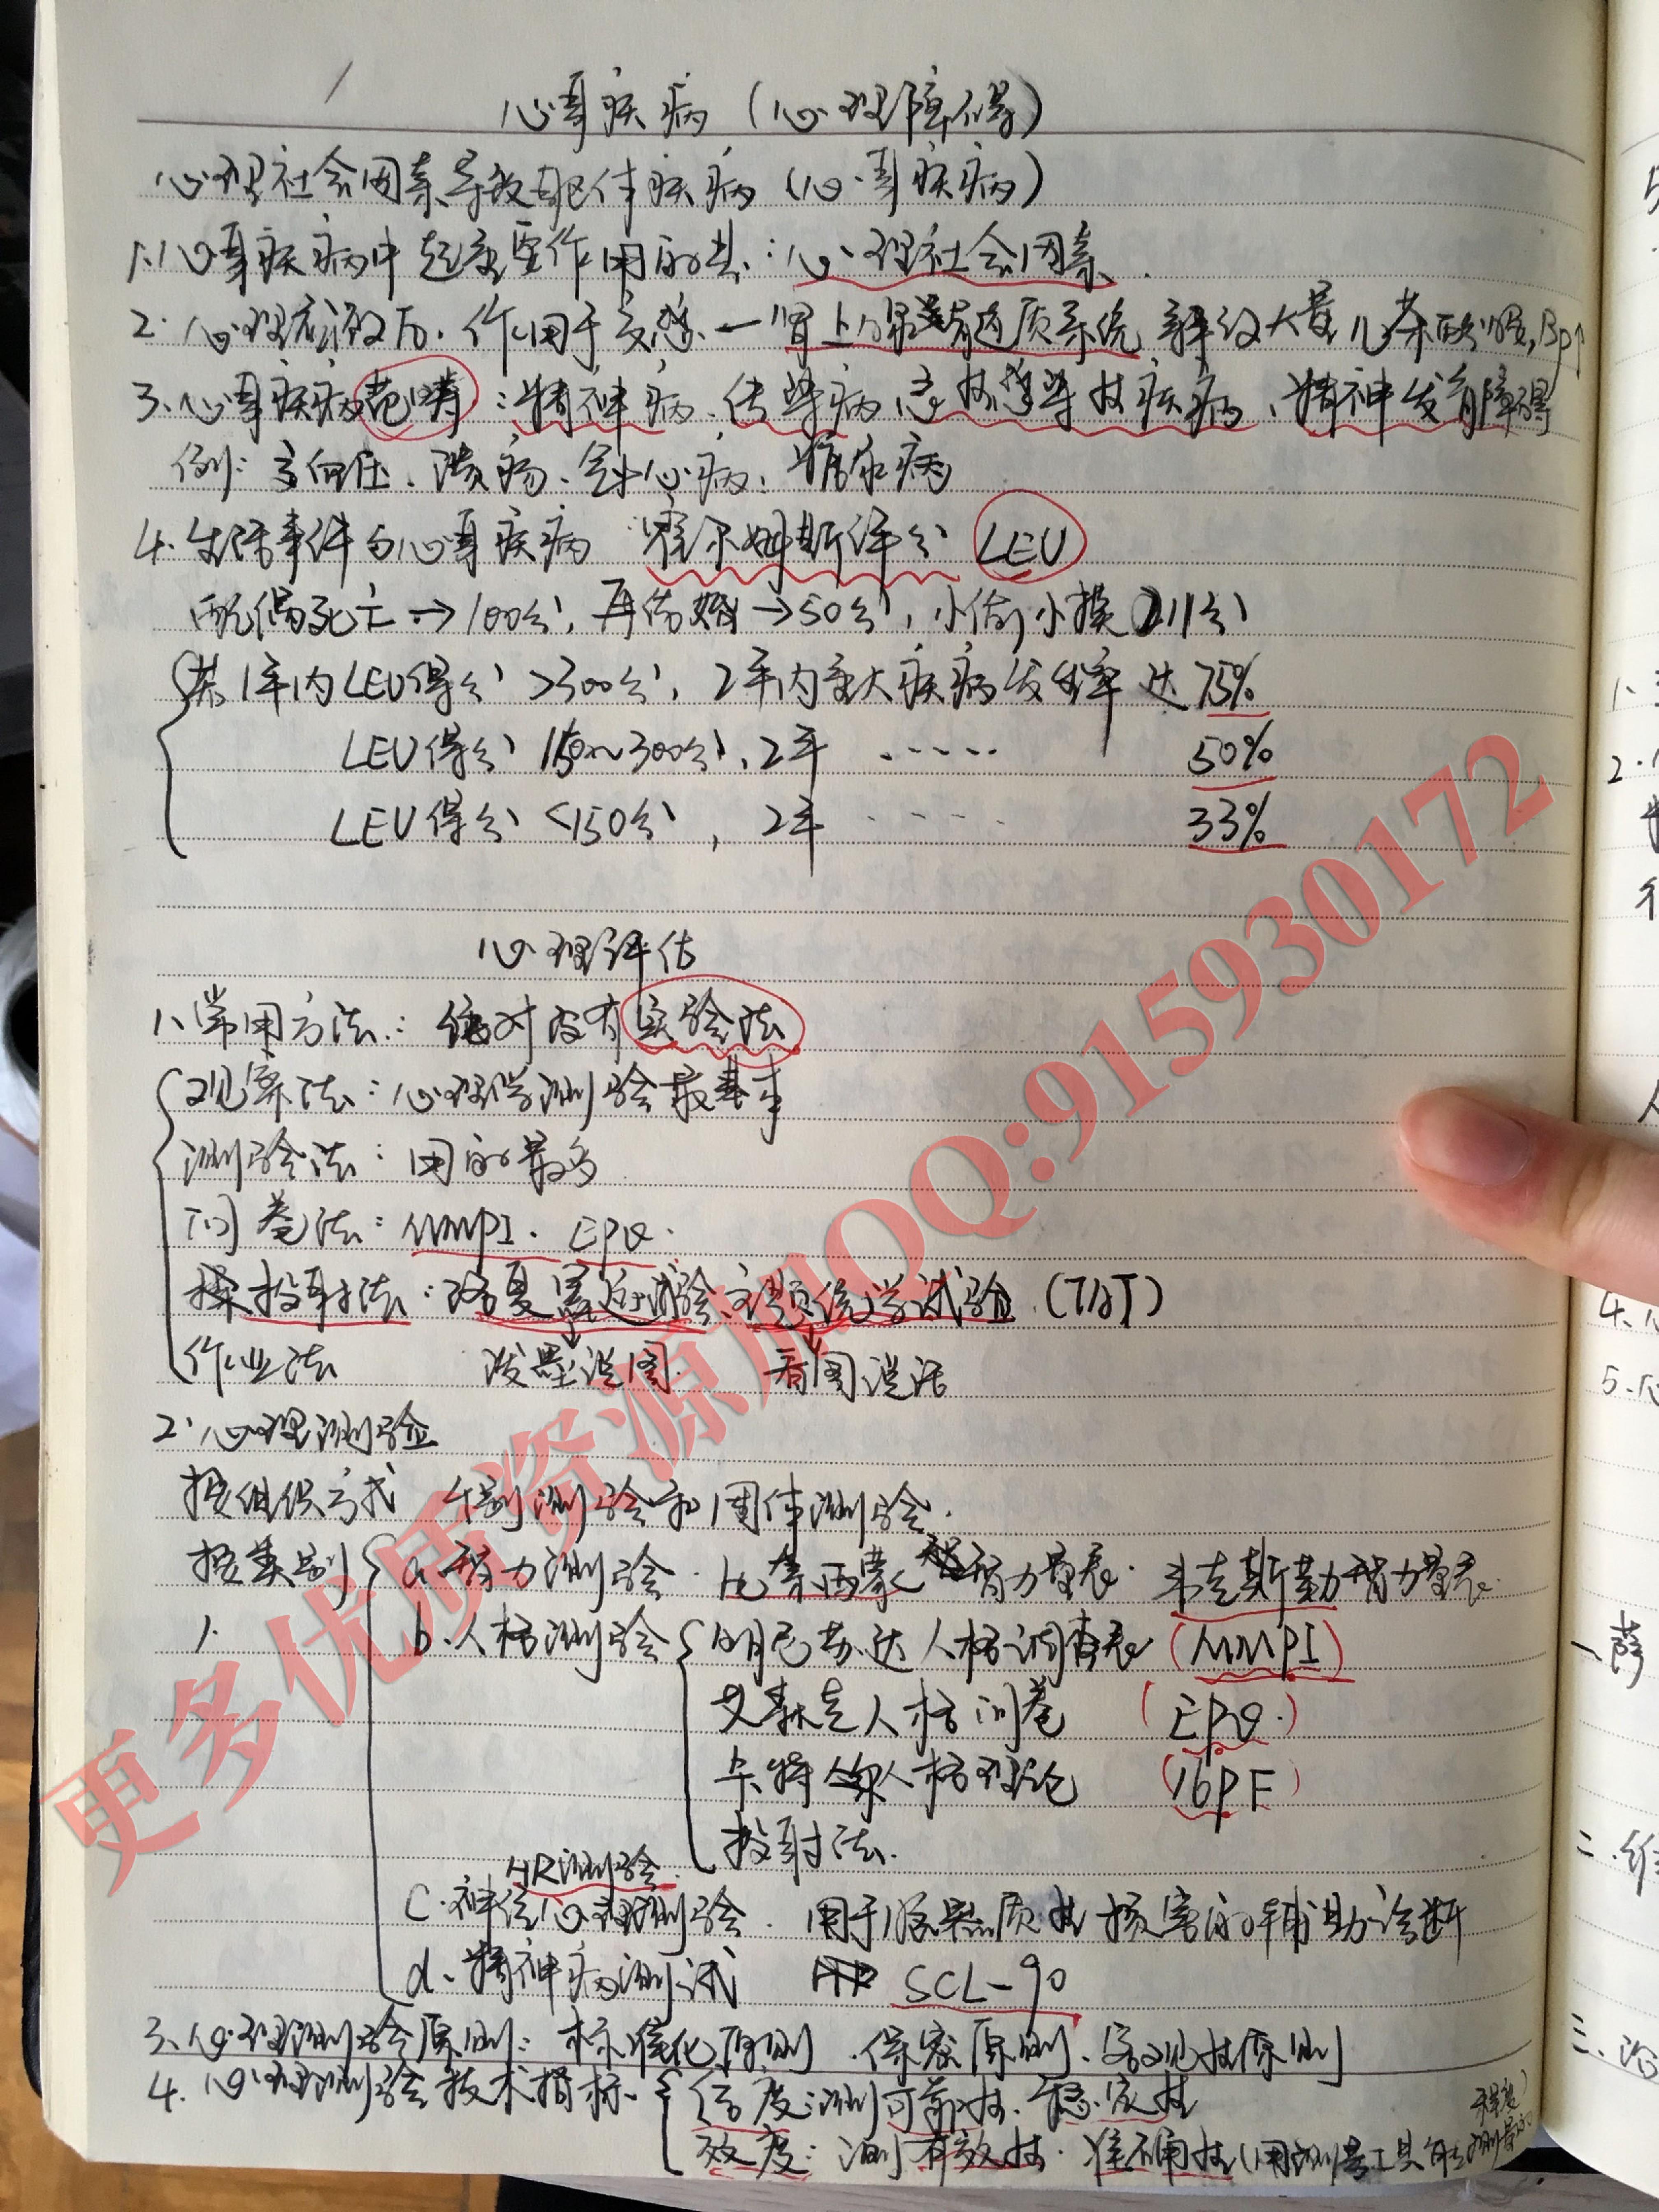 心身疾病（心理障碍）
心理社会因素导致躯体疾病（心身疾病）
1.心身疾病中起重要作用的是：心理社会因素
2.心理应激后.作用于交感一肾上腺髓质系统 释放大量儿茶酚胺，Bp↑
3.心身疾病范畴：精神病、传染病、性疾病、精神发育障碍
例：高血压、溃疡、冠心病、糖尿病
4.生活事件与心身疾病 霍尔姆斯评分 LEU
配偶死亡→100分，再结婚→50分，小偷小摸 11分
若1年内LEU得分>300分，2年内重大疾病发生率达75%
LEU得分 150~300分，2年 ····· 50%
LEU得分<150分，2年 ···· 33%
心理评估
1、常用方法：绝对没有实验法
观察法：心理学测验最基本
测验法：用的最多
问卷法：MMPI. EPQ.
投射法：罗夏墨迹试验、主题统觉试验（TAT）
作业法 泼墨说图 看图说话
2.心理测验
按组织方式 个别测验和团体测验.
按类别 a.智力测验.比奈西蒙智力量表.韦克斯勒智力量表.
1. b.人格测验 明尼苏达人格调查表（MMPI）
艾森克人格问卷（EPQ.）
卡特尔人格理论（16PF）
投射法.
HR测验.
C.神经心理测验.用于脑器质性损害的辅助诊断
d、精神病测试 SCL-90
3、心理测验原则：标准化原则.保密原则、客观性原则
4.心理测验技术指标. 信度：测可靠性.稳定性
效度：测有效性.准确性（用测量工具能测量的程度）
更多优质资源加QQ:915930172